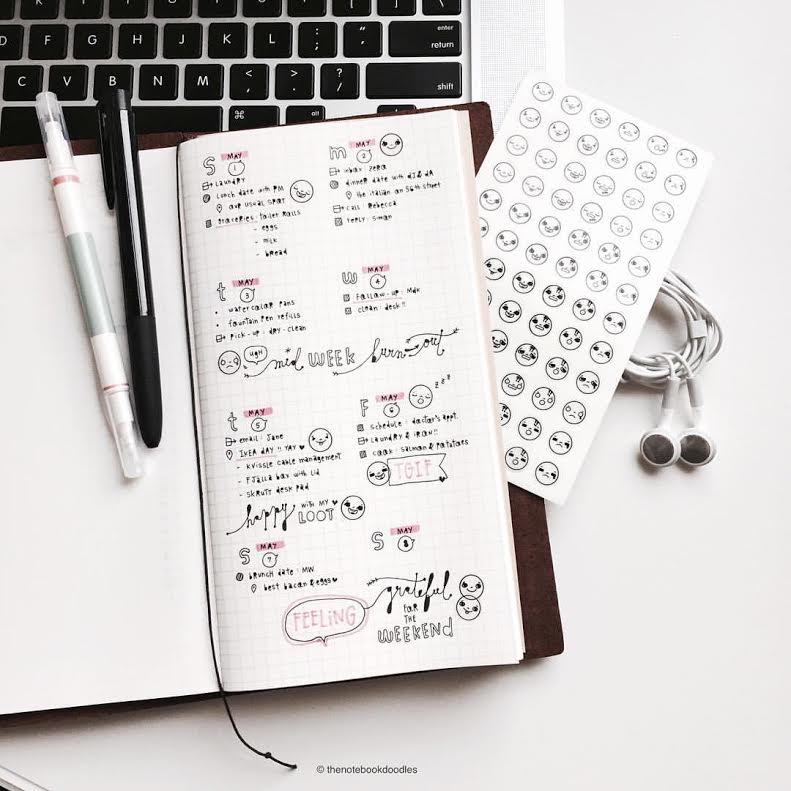 enter
D F G H J K L : ; " ' return
C V B N M < , > . ? / shift
⌘ alt alt
S MAY 1
Laundry
Lunch date with PM
our usual spot
groceries: toilet rolls
- eggs
- milk
- bread
m MAY 2
inbox: zero
dinner date with dJ & dA
the italian on 56th street
call: Rebecca
reply: Simon
t MAY 3
• watercolor pans
• fountain pen refills
Pick-up: dry-clean
w MAY 4
Follow-up: Mdk
clean: desk!!
UGH mid WEEK burn-out
t MAY 5
email: Jane
IKEA DAY!! YAY ♥
- KVISSLE cable management
- FJÄLLA box with lid
- SKRUTT desk pad
happy WITH MY ♥ LOOT
F MAY 6 z z z
schedule: doctor's appt.
Laundry & IRON!!
cook: salmon & potatoes
TGIF
S MAY 7
brunch date: MW
best bacon & eggs ♥
S MAY 8
FEELING
grateful
FOR
THE
WEEKEND
© thenotebookdoodles